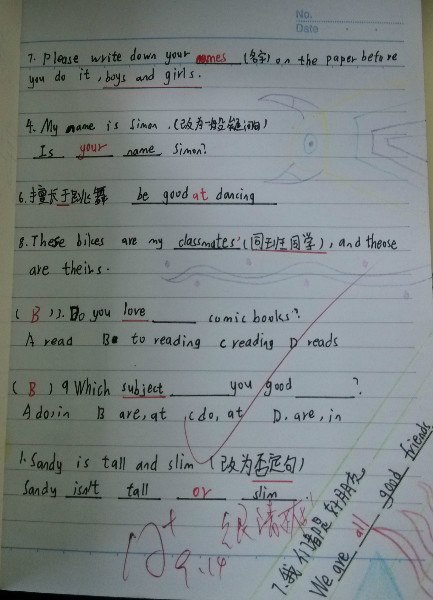 No.
Date
7. Please write down your names (名字) on the paper before
you do it, boys and girls.
4. My name is Simon. (改为一般疑问句)
Is your name Simon?
6. 擅长于跳舞 be good at dancing
8. These bikes are my classmates' (同班同学), and theose
are theirs.
( B ) 3. Do you love ____ comic books?
A read B to reading C reading D reads
( B ) 9 Which subject ____ you good ____?
A do, in B are, at C do, at D. are, in
1. Sandy is tall and slim (改为否定句)
Sandy isn't tall or slim.
A+
9.14
7. 我们都是好朋友
We are all good friends